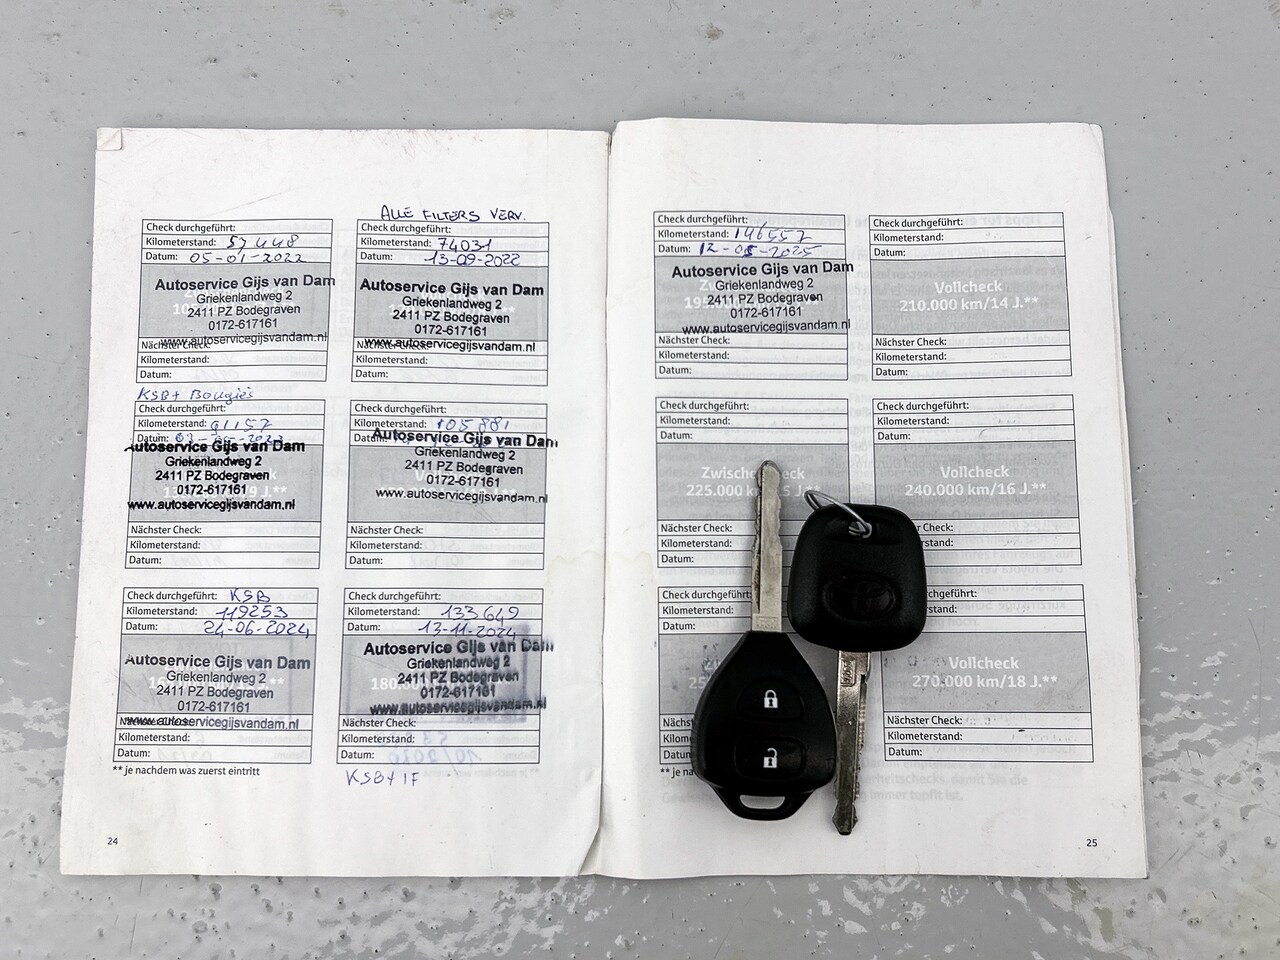 Check durchgeführt:
Kilometerstand: 57448
Datum: 05-01-2022
Autoservice Gijs van Dam
Griekenlandweg 2
2411 PZ Bodegraven
0172-617161
www.autoservicegijsvandam.nl
Nächster Check:
Kilometerstand:
Datum:
ALLE FILTERS VERV.
Check durchgeführt:
Kilometerstand: 74031
Datum: 13-09-2022
Autoservice Gijs van Dam
Griekenlandweg 2
2411 PZ Bodegraven
0172-617161
www.autoservicegijsvandam.nl
Kilometerstand:
Datum:
KSB + Bougies
Check durchgeführt:
Kilometerstand: 91157
Datum:
Autoservice Gijs van Dam
Griekenlandweg 2
2411 PZ Bodegraven
0172-617161
www.autoservicegijsvandam.nl
Nächster Check:
Kilometerstand:
Datum:
Check durchgeführt:
Kilometerstand: 105881
Autoservice Gijs van Dam
Griekenlandweg 2
2411 PZ Bodegraven
0172-617161
www.autoservicegijsvandam.nl
Nächster Check:
Kilometerstand:
Datum:
Check durchgeführt: KSB
Kilometerstand: 119253
Datum: 24-06-2024
Autoservice Gijs van Dam
Griekenlandweg 2
2411 PZ Bodegraven
0172-617161
www.autoservicegijsvandam.nl
Kilometerstand:
Datum:
** je nachdem was zuerst eintritt
Check durchgeführt:
Kilometerstand: 133649
Datum: 13-11-2024
Autoservice Gijs van Dam
Griekenlandweg 2
2411 PZ Bodegraven
0172-617161
www.autoservicegijsvandam.nl
Nächster Check:
Kilometerstand:
Datum:
KSB + IF
24
Check durchgeführt:
Kilometerstand: 146557
Datum: 12-05-2025
Autoservice Gijs van Dam
Griekenlandweg 2
2411 PZ Bodegraven
0172-617161
www.autoservicegijsvandam.nl
Nächster Check:
Kilometerstand:
Datum:
Check durchgeführt:
Kilometerstand:
Datum:
Vollcheck
210.000 km/14 J.**
Nächster Check:
Kilometerstand:
Datum:
Check durchgeführt:
Kilometerstand:
Datum:
225.000
Nächster Check:
Kilometerstand:
Datum:
Check durchgeführt:
Kilometerstand:
Datum:
Vollcheck
240.000 km/16 J.**
Check:
Check durchgeführt:
Kilometerstand:
Datum:
Vollcheck
270.000 km/18 J.**
Nächster Check:
Kilometerstand:
Datum:
25